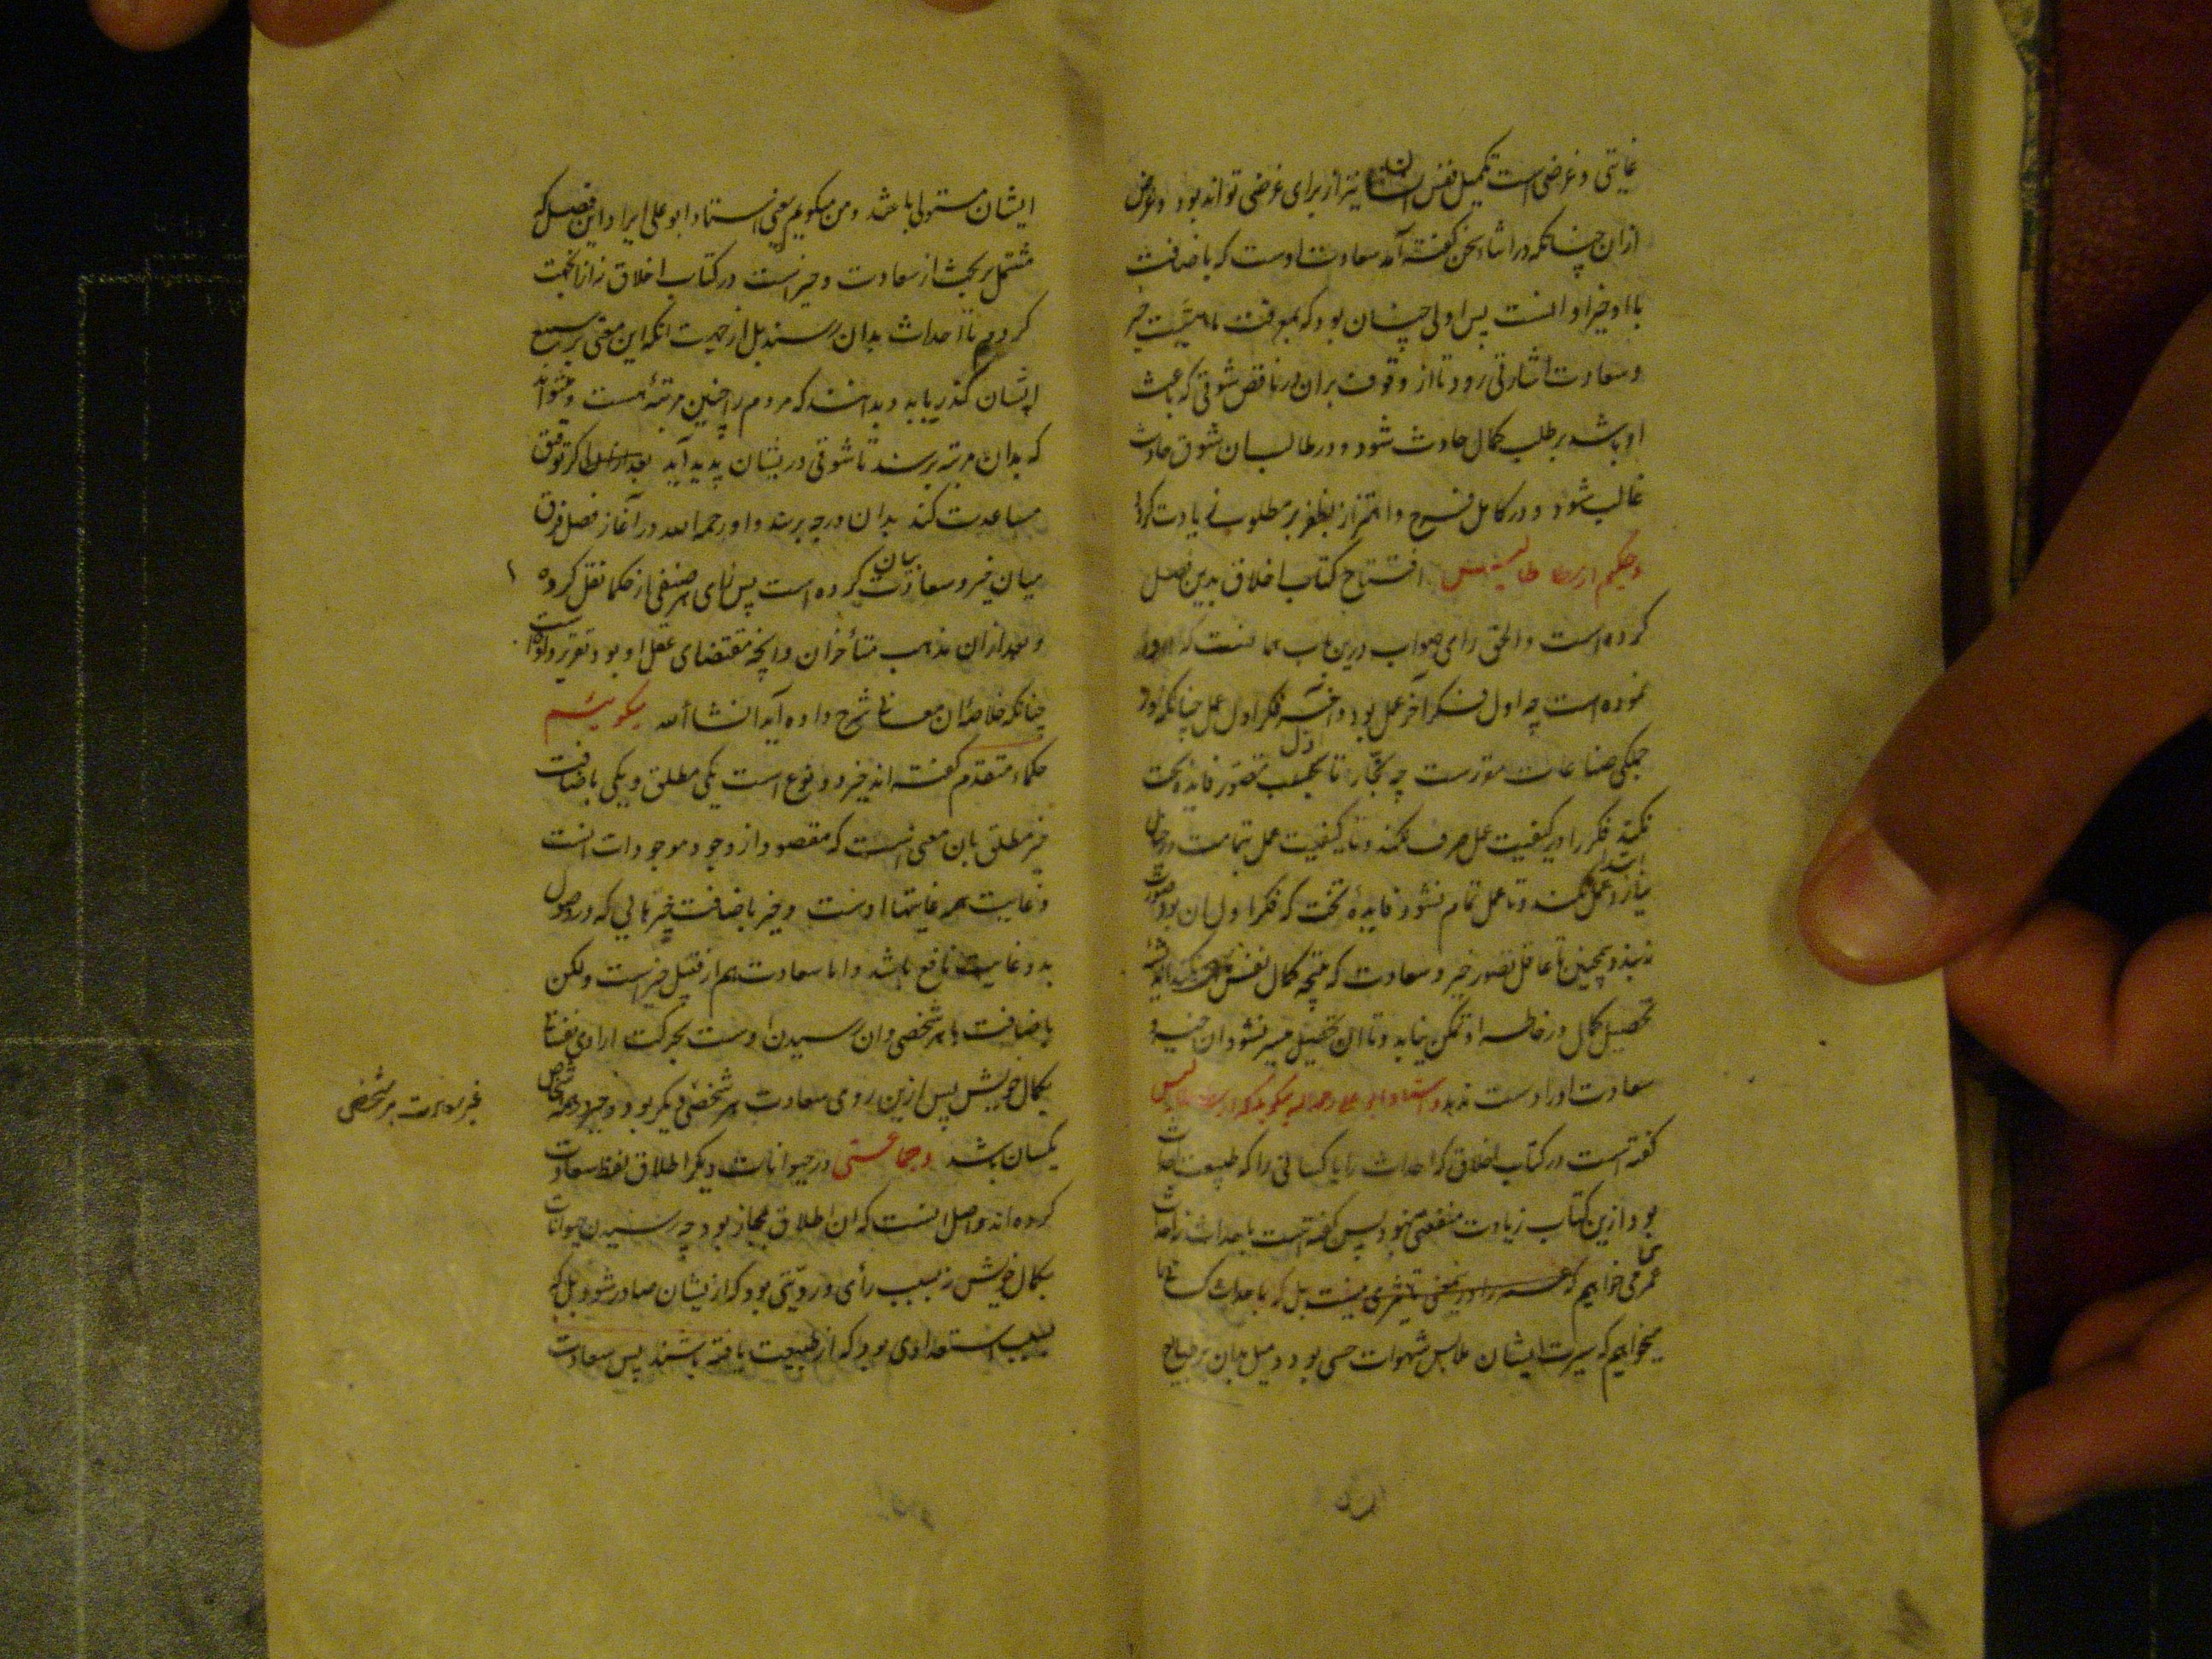 غایتی و غرضی است تکمیل نفس انسان نیز از برای غرضی تواند بود و غرض
ازان چنانکه در اثناء سخن گفته آمد سعادت اوست که باضافت
با او خیر او انست پس اولی چنان بود که بمعرفت ماهیت خیر
و سعادت اشارتی رود تا از وقوف بران در ناقص شوقی که باعث
او باشد بر طلب کمال حادث شود و در طالبان شوق حادث
غالب شود و در کامل فرح و اهتزاز بظفر بر مطلوب زیادت کردد
و حکیم ارسطاطالیس افتتاح کتاب اخلاق بدین فصل
کرده است و الحق رای صواب درین باب همانست که او
نموده است چه اول فکر آخر عمل بود و آخر فکر اول عمل چنانکه در
جملکی صناعات مقررست چه نجار تا بحسب تصور فایده تخت
نکند فکر را در کیفیت عمل صرف نکند و تا کیفیت عمل بتمامت در خیال
نیارد ابتدا عمل نکند و تا عمل تمام نشود فایده تخت که فکر اول ان بود صورت
نبندد همچنین تا عاقل تصور خیر و سعادت که نتیجه کمال نفس نکند اندیشه
تحصیل کمال در خاطر او تمکن نیابد و تا ان تحصیل میسر نشود ان خیر و
سعادت او را دست ندهد و استاد ابو علی رحمه الله میکوید که ارسطاطالیس
گفته است در کتاب اخلاق که احداث را یا کسانی را که طبیعت احداث
بود ازین کتاب زیادت منفعتی نبود پس گفته است باحداث نه احداث
عمر می خواهیم که عمر را درین معنی تاثیری نیست بل که باحداث کسانی
میخواهیم که سیرت ایشان ملابس شهوات حسی بود و میل بدان بر طبایع
ایشان مستولی باشد و من میکویم یعنی استاد ابو علی ایراد این فصل که
مشتمل بر بحث از سعادت و خیر است در کتاب اخلاق نه از انجهت
کردم تا احداث بدان رسند بل از جهت انکه این معنی بر سمع
ایشان کذر یابد و بدانند که مردم را چنین مرتبه هست و میتواند
که بدان مرتبه برسند تا شوقی در یشان پدید آید بعد ازان اکر توفیق
مساعدت کند بدان درجه برسند و او رحمه الله در آغاز فصل فرق
میان خیر و سعادت بیان کرده است پس رای هر صنفی از حکما نقل کرده
و بعد ازان مذهب متأخران و انچه مقتضای عقل او بود تقریر داده است
چنانکه خلاصه ان معانی شرح داده آید انشا الله میکوییم
حکماء متقدم گفته اند خیر دو نوع است یکی مطلق و یکی باضافت
خیر مطلق بان معنی است که مقصود از وجود موجودات انست
و غایت همه غایتها اوست و خیر باضافت خیرهایی که در وصول
بدو غایت نافع باشد و اما سعادت هم از قبیل خیر است و لکن
باضافت با هر شخصی و ان رسیدن اوست بحرکت ارادی نفسانی
بکمال خویش پس ازین روی سعادت هر شخصی دیکر بود و خیر در همه اشخاص
غیر سعادت هر شخصی
یکسان باشد و جماعتی در حیوانات دیکر اطلاق لفظ سعادت
کرده اند و اصل انست که ان اطلاق بمجاز بود چه رسیدن حیوانات
بکمال خویش نه بسبب رأی و رویتی بود که از یشان صادر شود بل که
بسبب استعدادی بود که از طبیعت یافته باشند پس سعادت